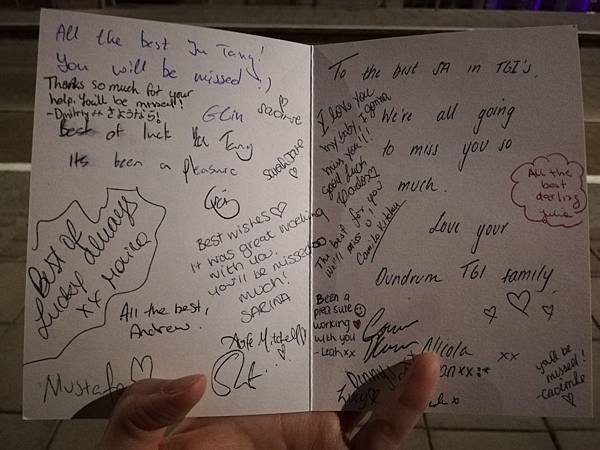 All the best Ju Tang!
You will be missed :)
Thanks so much for your
help. You'll be missed!
- Dmitriy さようなら!
Sadhbh
Best of luck Ju Tang
Its been a pleasure
Sarah Jane
Best of
Luck always
xx Moira
Best wishes
it was great working
with you.
you'll be missed so
much!
SARINA
All the best,
Andrew.
Aoife Mitchell
Mustafa
To the best SA in TGI's,
We're all going
to miss you so
much.
Love your
Dundrum TGI family
I love you
my baby, I gonna
miss you!!!
good luck
The best for you
we'll miss u!
Camila
All the
best
darling
Julia
Been a
pleasure
working
with you
- Leah xx
Nicola
xx
Lucy
you'll be
missed!
- Caoimhe